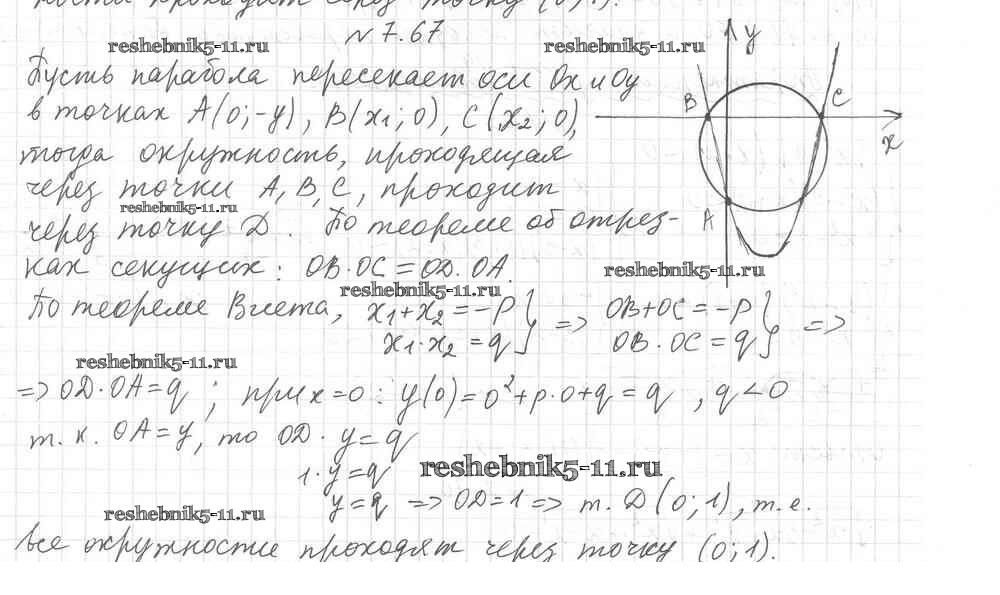 ности проходят через точку (0;1).
№ 7.67
reshebnik5-11.ru reshebnik5-11.ru
Пусть парабола пересекает оси Ox и Oy
в точках A(0;-y), B(x1;0), C(x2;0),
тогда окружность, проходящая
через точки A, B, C, проходит
reshebnik5-11.ru
через точку D. По теореме об отрез-
ках секущих: OB·OC=OD·OA.
y
B C
x
A
reshebnik5-11.ru
reshebnik5-11.ru
По теореме Виета, x1+x2=-p } => OB+OC=-p } =>
x1·x2=q OB·OC=q
reshebnik5-11.ru
=> OD·OA=q ; при x=0: y(0)=0²+p·0+q=q , q<0
т.к. OA=y, то OD·y=q
1·y=q reshebnik5-11.ru
y=q => OD=1 => т. D(0;1), т.е.
reshebnik5-11.ru
все окружности проходят через точку (0;1).